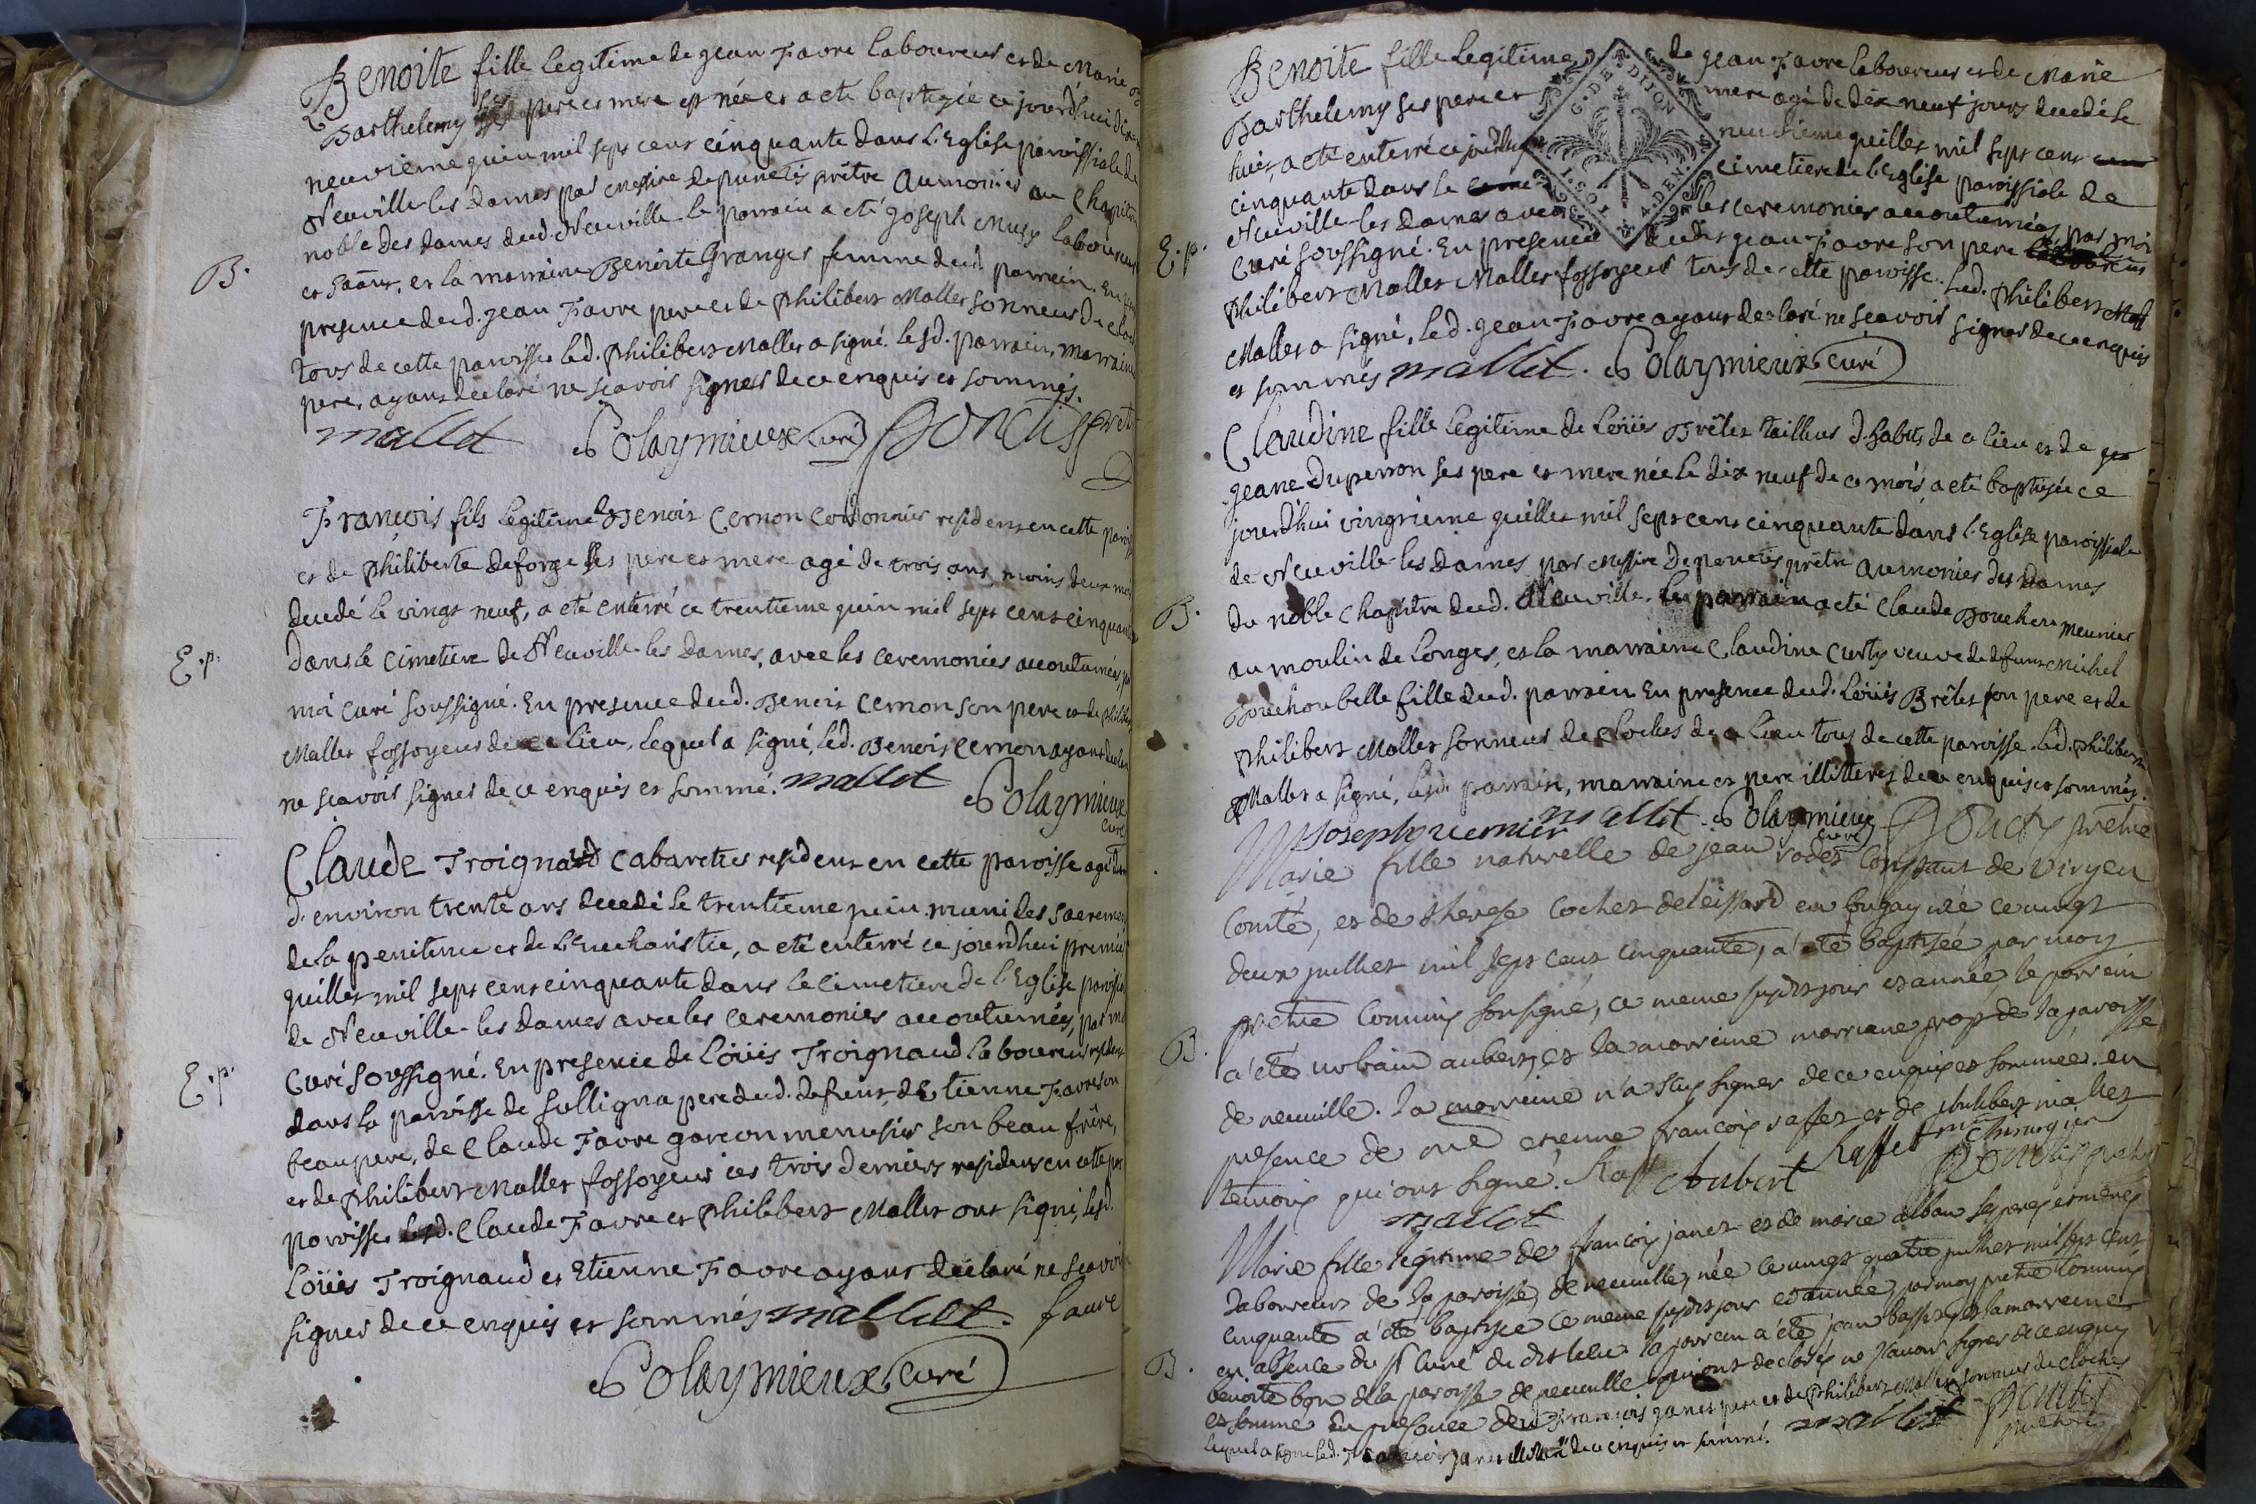 Benoite fille legitime de jean Favre laboureur et de Marie
Barthelemy ses pere et mere est née et a eté baptizée ce jourd'hui dix
neuvieme juin mil sept cent cinquante dans l'Eglise paroissiale de
Neuville-les dames par Messire deponcetis prêtre Aumonier au Chapitre
noble des dames dud. Neuville. le parrain a eté joseph Mugy laboureur
et la marraine Benoite Granger femme dud. parrein. En
presence dud. jean Favre pere et de philibert Mallet sonneur de
B.
tous de cette paroisse led. philibert Mallet a signé. lesd. parrain, marraine
pere, ayant declaré ne scavoir signer de ce enquis et sommés.
mallet Colaymieux curé
François fils legitime Benoit Cernon Cordonnier resident en cette
et de philiberte deforge ses pere et mere agé de trois ans moins deux
decedé le vingt neuf, a eté enterré ce trentieme juin mil sept cent cinquante
E.p.
dans le cimetiere de Neuville-les Dames, avec les ceremonies accoutumées,
moi curé soussigné. En presence dud. Benoit Cernon son pere et de
Mallet fossoyeur de ce lieu, lequel a signé, led. Benoit Cernon ayant
ne scavoir signer de ce enquis et sommé. mallet Colaymieux
curé
Claude Troignard Cabaretier resident en cette paroisse agé
d'environ trente ans decedé le trentieme juin muni des
de la penitence et de l'Eucharistie, a eté enterré ce jourd'hui premier
juillet mil sept cent cinquante dans le cimetiere de l'Eglise
de Neuville-les dames avec les ceremonies accoutumées, par
E.p.
Curé soussigné. En presence de Loüis Troignaud laboureur
dans la paroisse de Sulligna pere dud. defunt de Etienne Favre son
beaupere, de Claude Favre garcon menusier son beau frère,
et de philibert Mallet fossoyeur ces trois derniers residens en cette
paroisse. Claude Favre et philibert Mallet ont signé, lesd.
Loüis Troignaud et Etienne Favre ayant declaré ne scavoir
signer de ce enquis et sommés mallet. faure
Colaymieux, curé
Benoite fille legitime de jean Favre laboureur et de Marie
Barthelemy ses pere et mere agé de dix neuf jours decedé le
hier, a eté enterré ce jourd'huy neuvieme juillet mil sept cent
cinquante dans le cimetiere de l'Eglise paroissiale de
G. DE DIJON
Neuville-les dames avec les ceremonies accoutumées, par moi
E.p.
Curé soussigné. En presence dudit jean Favre son pere
philibert Mallet fossoyeur tous de cette paroisse. led. philibert
Mallet a signé, led. jean Favre ayant declaré ne scavoir signer de ce enquis
et sommés mallet. Colaymieux curé
Claudine fille legitime de Loüis Brêlet tailleur d'habits de ce lieu et de
jeane Duperron ses pere et mere née le dix neuf de ce mois a eté baptizée ce
jourd'hui vingtieme juillet mil sept cent cinquante dans l'Eglise paroissiale
de Neuville-les Dames par Messire Deponcetis prêtre Aumonier des Dames
B.
du noble Chapitre dud. Neuville. le parrain a eté Claude Bouchou meunier
au moulin de Longes, et la marraine Claudine Curty veuve de defunt Michel
Bouchou belle fille dud. parrain En presence dud. Loüis Brêlet son pere et de
philibert Mallet sonneur de cloches de ce lieu tous de cette paroisse. led. philibert
Mallet a signé, lesd. parrain, marraine et pere illitterés de ce enquis et sommés.
mallet Colaymieux curé prêtre
Marie fille naturelle de jean rodet
Comté, et de therese cochet
deux juillet mil sept cent cinquante, a été baptisée par moy
prêtre Commis sousigné, ce meme susdit jour et année, le parrein
B.
a été urbain aubert, et la marreine de la paroisse
de neuville. la marreine n'a sçu signer de ce enquise et sommée. en
presence de me etienne francois raffet et de philibert mallet
temoins qui ont signé. Raff Aubert Raffet chirurgien
mallet
Marie fille legitime de francois janet et de marie alban ses peres et meres
laboureurs de la paroisse de neuville, née ce vingt quatre juillet mil sept cent
cinquante a été baptisée ce meme susdit jour et année, par moy prêtre Commis
en absence du sr Curé du dit lieu le parrein a été jean et la marreine
B.
benoite de la paroisse de neuville qui ont declarés ne scavoir signer de ce enquis
et sommé en presence dud. francois janet pere et de philibert Mallet sonneur de cloches
lequel a signé led. francois janet illitteré de ce enquis et sommé. mallet